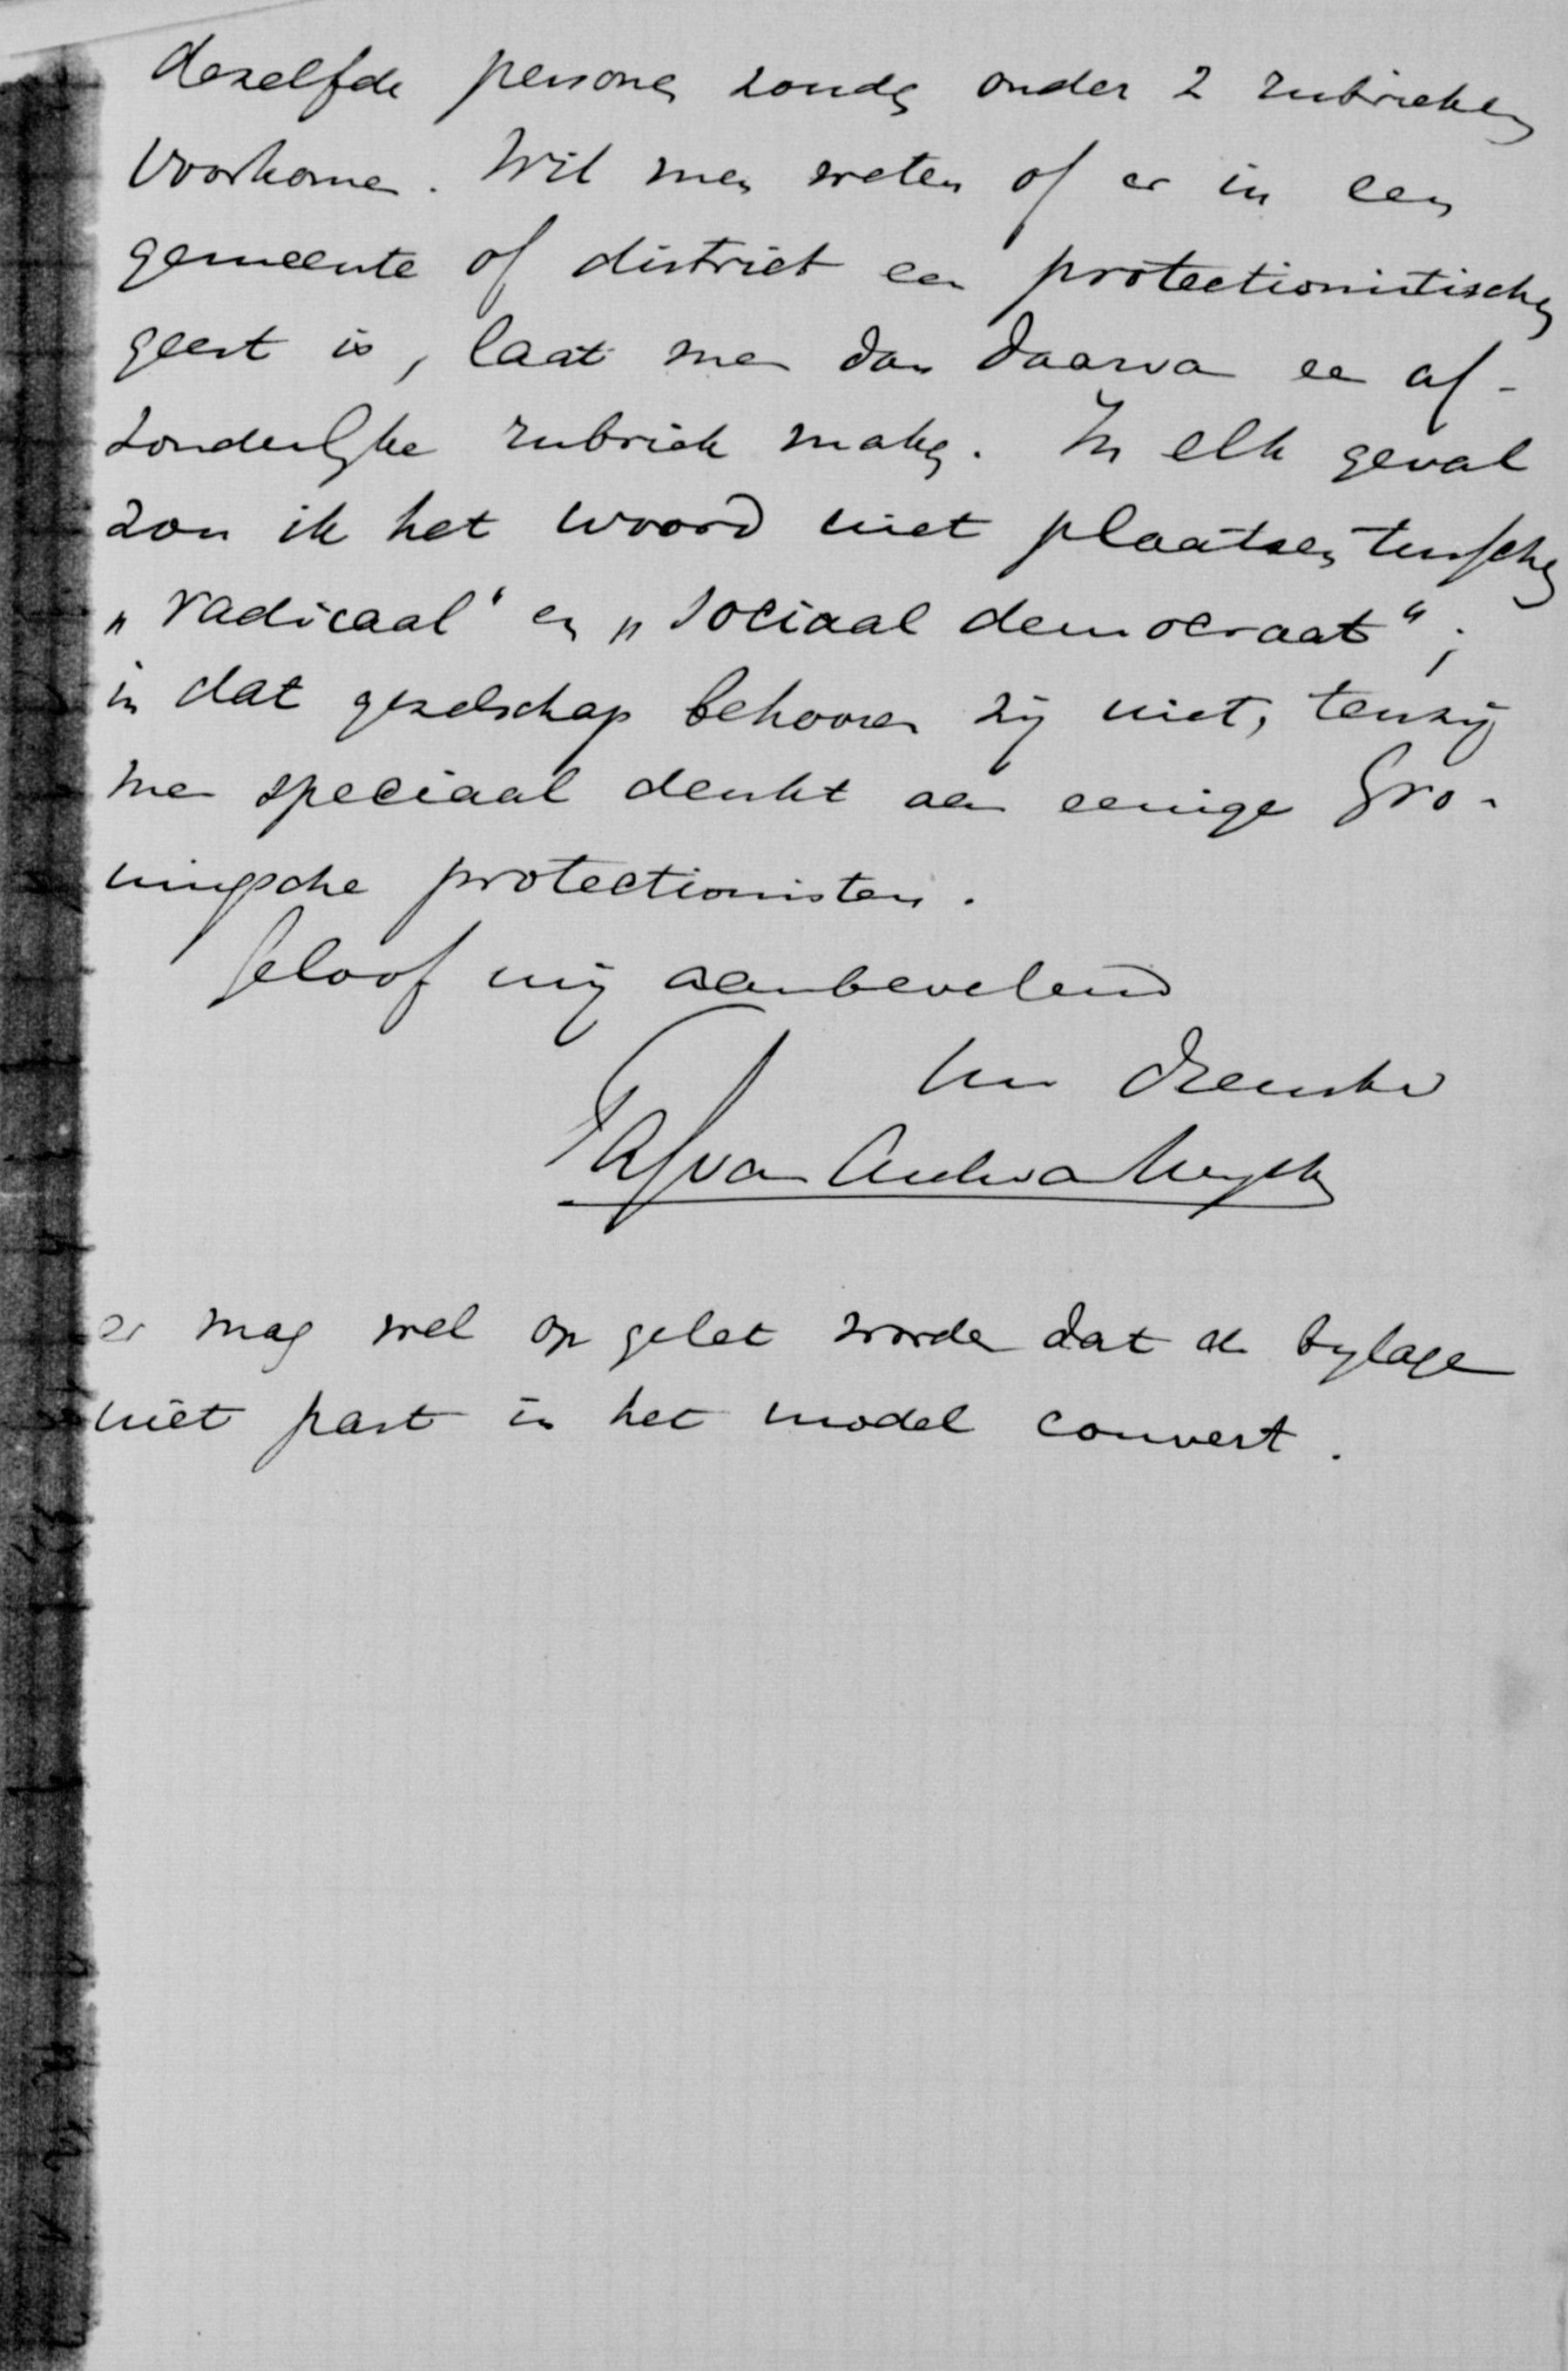 dezelfde personen zouden onder 2 rubrieken
voorkomen. Wil men weten of er in een
gemeente of district een protectionistischen
geest is, laat men dan daarvan een af-
zonderlijke rubriek maken. In elk geval
zou ik het woord niet plaatsen tusschen
„radicaal" en „sociaal democraat";
in dat gezelschap behooren zij niet, tenzij
men speciaal denkt aan eenige Gro-
ningsche protectionisten.
Geloof mij aanbevelend
Uw dienstw
van
er mag wel op gelet worden dat de bylage
niet past in het model couvert.